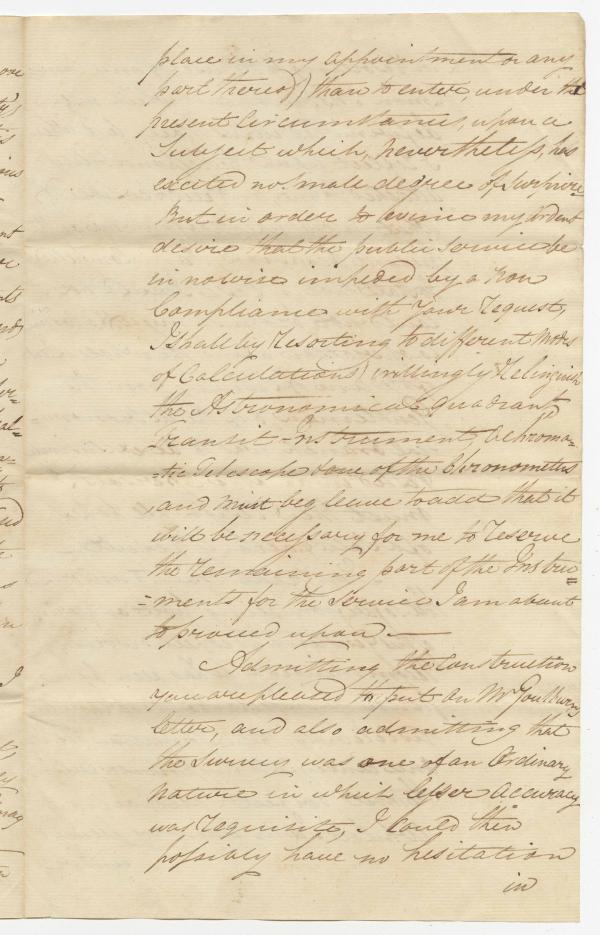 place in my appointment or any
part thereof) than to enter, under the
present Circumstances, upon a
Subject which, nevertheless, has
excited no small degree of surprize
But in order to evince my ardent
desire that the public Service be
in nowise impeded by a non
Compliance with Your request,
I shall by resorting to different Modes
of Calculations) willingly relinquish
the Astronomical quadrant
Transit-Instrument, Achroma-
-tic Telescope & one of the Chronometers
, and must beg leave to add that it
will be necessary for me to reserve
the remaining part of the Instru=
=ments for the Service I am about
to proceed upon —
Admitting the Construction
you are pleased to put on Mr
letter, and also admitting that
the Survey was one of an Ordinary
nature in which lesser Accuracy
was requisite, I could then
possibly have no hesitation
in